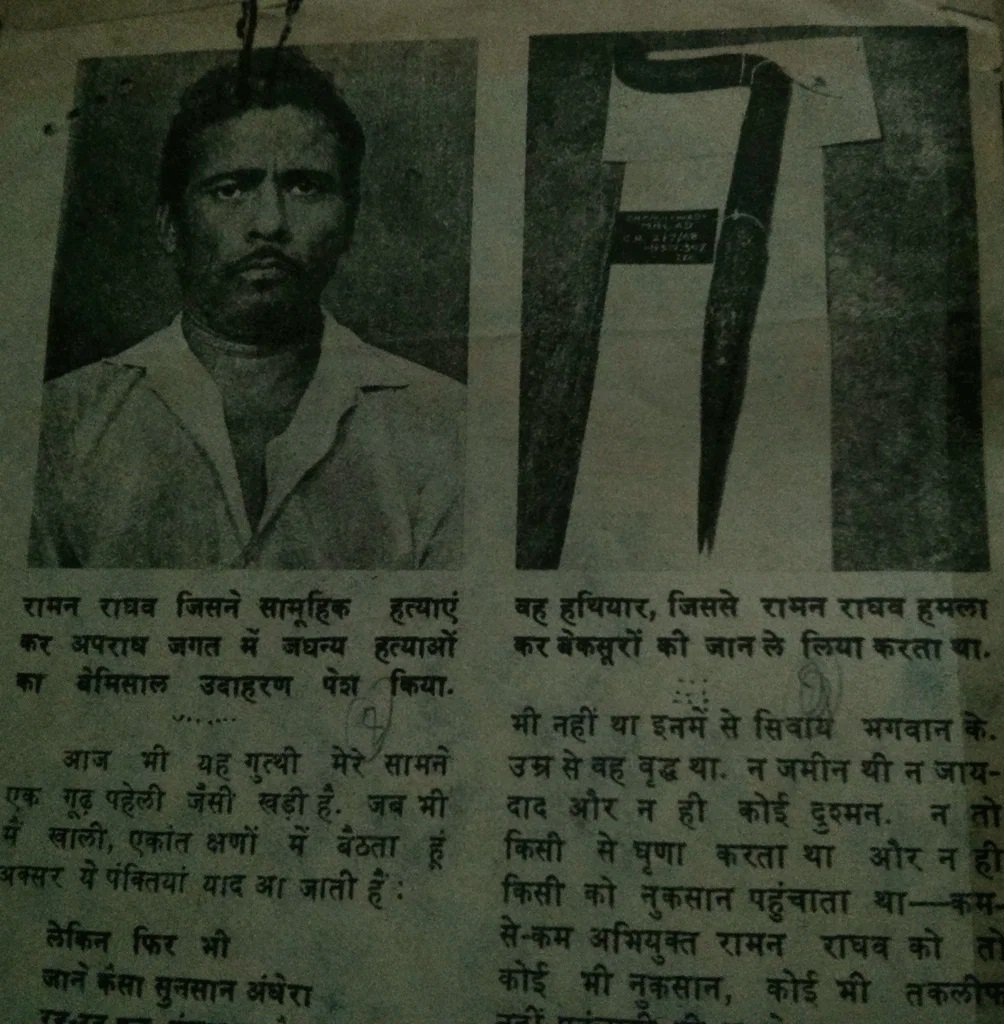 MALAD
रामन राघव जिसने सामूहिक हत्याएं
कर अपराध जगत में जघन्य हत्याओं
का बेमिसाल उदाहरण पेश किया.
आज भी यह गुत्थी मेरे सामने
एक गूढ़ पहेली जैसी खड़ी है. जब भी
मैं खाली, एकांत क्षणों में बैठता हूं
अक्सर ये पंक्तियां याद आ जाती हैं :
लेकिन फिर भी
जाने कैसा सुनसान अंधेरा
वह हथियार, जिससे रामन राघव हमला
कर बेकसूरों की जान ले लिया करता था.
भी नहीं था इनमें से सिवाय भगवान के.
उम्र से वह वृद्ध था. न जमीन थी न जाय-
दाद और न ही कोई दुश्मन. न तो
किसी से घृणा करता था और न ही
किसी को नुकसान पहुंचाता था—कम-
से-कम अभियुक्त रामन राघव को तो
कोई भी नुकसान, कोई भी तकलीफ